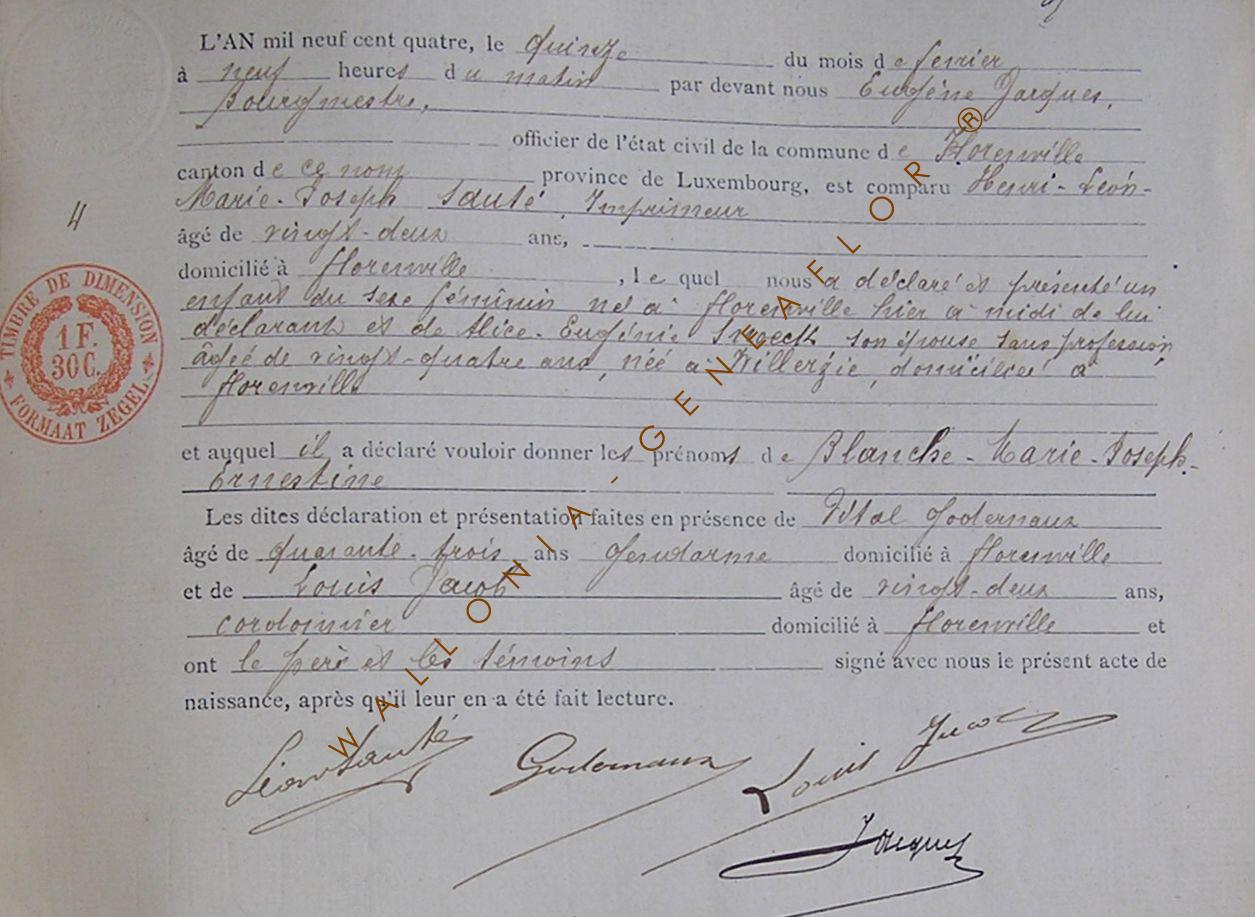 L'AN mil neuf cent quatre, le quinze du mois de fevrier
à neuf heures du matin par devant nous Eugène Jacques,
Bourgmestre,
officier de l'état civil de la commune de Florenville
canton de ce nom province de Luxembourg, est comparu Henri-Léon-
Marie-Joseph Sauté, Imprimeur
4
âgé de vingt-deux ans,
domicilié à Florenville, lequel nous a déclaré et présenté un
enfant du sexe féminin né à Florenville hier à midi de lui
déclarant et de Alice-Eugénie son épouse sans profession,
âgée de vingt-quatre ans, née à Willerzie, domiciliée à
Florenville
et auquel il a déclaré vouloir donner les prénoms de Blanche-Marie-Joseph-
Ernestine
Les dites déclaration et présentation faites en présence de Vital Godernaux
âgé de quarante-trois ans Gendarme domicilié à Florenville
et de Louis Jacob âgé de vingt-deux ans,
cordonnier domicilié à Florenville et
ont le père et les témoins signé avec nous le présent acte de
naissance, après qu'il leur en a été fait lecture.
Léon Sauté Godernaux Louis Jacob
Jacques
TIMBRE DE DIMENSION
1 F.
30 C.
FORMAAT ZEGEL
WALLONIA-GENEAFLOR®